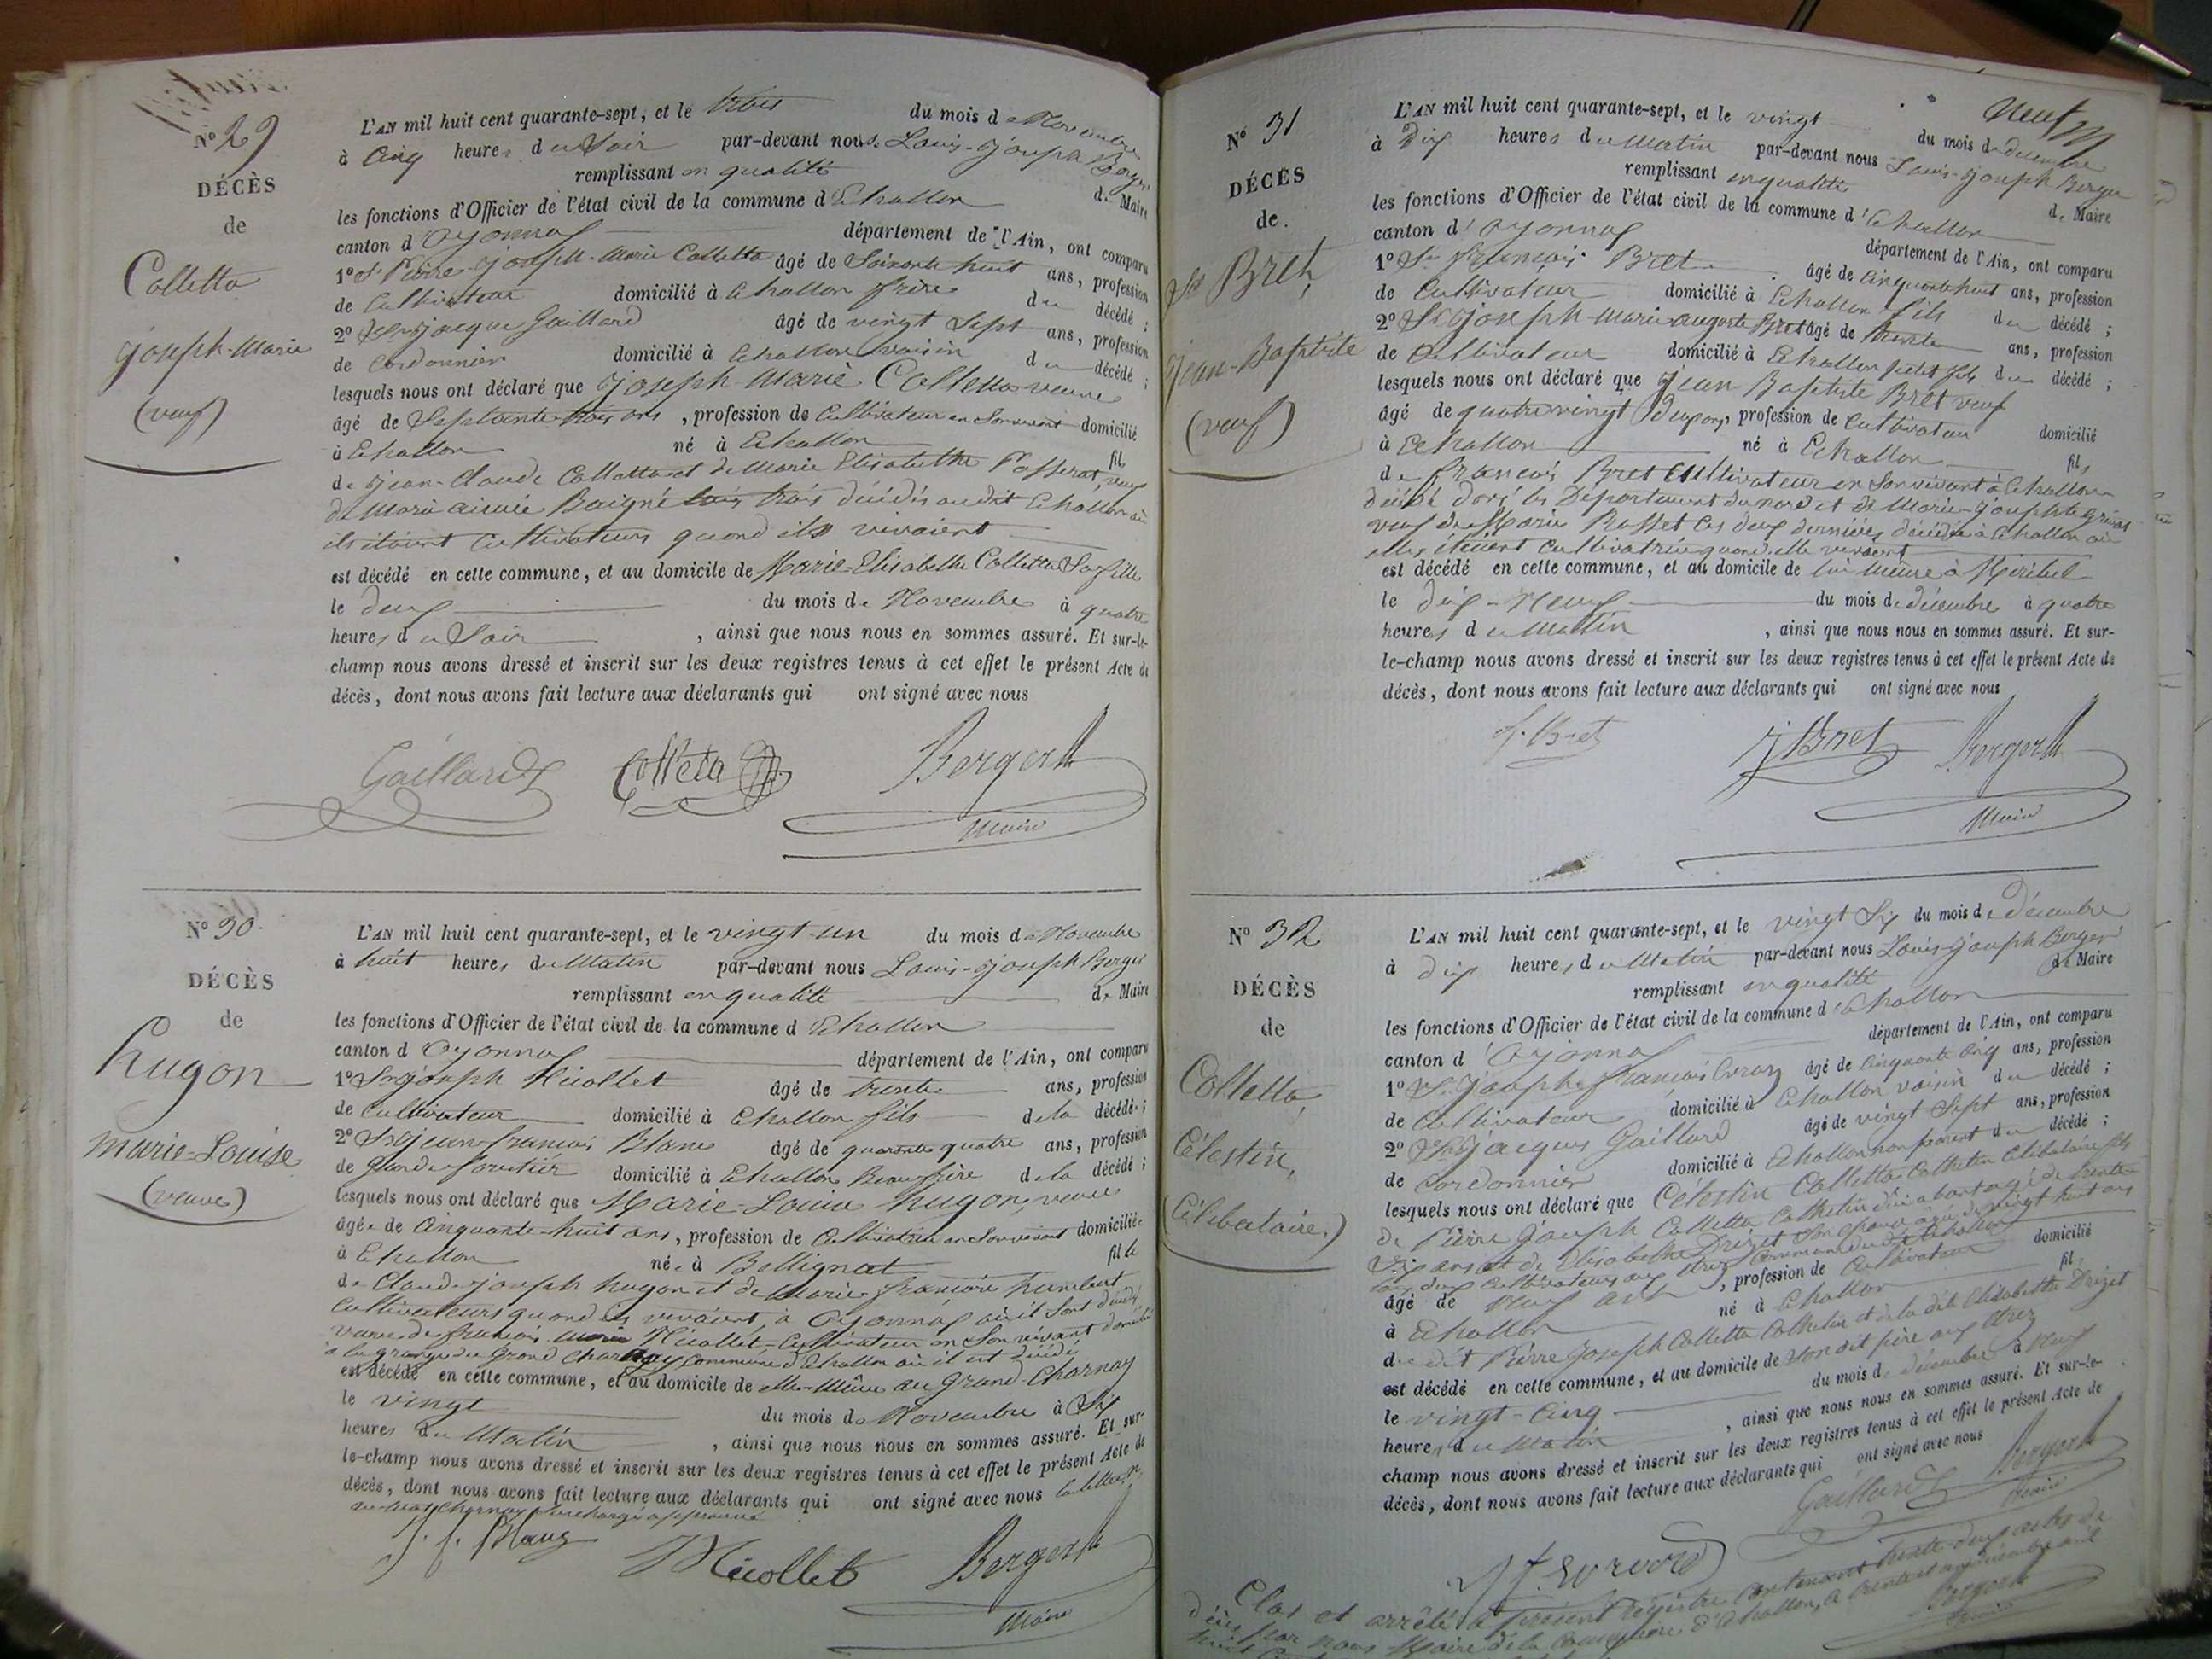 N° 29
DÉCÈS
de
Colletta
joseph-Marie
(veuf)
L'AN mil huit cent quarante-sept, et le trois du mois de Novembre
à Cinq heures du Soir par-devant nous Louis-joseph Berger
remplissant en qualité de Maire
les fonctions d'Officier de l'état civil de la commune d'Echallon
canton d'Oyonnax département de l'Ain, ont comparu
1° Sr Pierre-joseph-Marie Colletta âgé de Soixante huit ans, profession
de Cultivateur domicilié à Echallon frère du décédé ;
2° jacque Gaillard âgé de vingt Sept ans, profession
de Cordonnier domicilié à Echallon voisin du décédé ;
lesquels nous ont déclaré que joseph-Marie Colletta
âgé de Septante trois ans, profession de Cultivateur en Son vivant domicilié
à Echallon né à Echallon fils
de jean-Claude Colletta et de Marie Elisabethe Passerat, veuf
de Marie aimée Baigné tous trois décédés audit Echallon où
ils étaient Cultivateurs quand ils vivaient
est décédé en cette commune, et au domicile de Marie-Elisabethe Colletta Sa fille
le deux du mois de Novembre à quatre
heures du Soir, ainsi que nous nous en sommes assuré. Et sur-le-
champ nous avons dressé et inscrit sur les deux registres tenus à cet effet le présent Acte de
décès, dont nous avons fait lecture aux déclarants qui ont signé avec nous
Gaillard Colleta Berger
Maire
N° 30.
DÉCÈS
de
hugon
Marie-Louise
(veuve)
L'AN mil huit cent quarante-sept, et le vingt-un du mois de Novembre
à huit heures du Matin par-devant nous Louis-joseph Berger
remplissant en qualité de Maire
les fonctions d'Officier de l'état civil de la commune d Echallon
canton d Oyonnax département de l'Ain, ont comparu
1° Sr joseph Nicollet âgé de trente ans, profession
de Cultivateur domicilié à Echallon fils de la décédée ;
2° Sr jean-francois Blanc âgé de quarante quatre ans, profession
de Garde forestier domicilié à Echallon Beau frère de la décédé ;
lesquels nous ont déclaré que Marie-Louise hugon, veuve
âgée de Cinquante-huit ans, profession de Cultivatrice en Son vivant domiciliée
à Echallon née à Bellignat fille
de Claude-joseph hugon et de Marie françoise humbert
Cultivateurs quand ils vivaient, à Oyonnax où il Sont décédés
veuve de francois-Marie Nicollet-Cultivateur en Son vivant domicilié
à la grange du Grand Charnay commune d'Echallon où il est décédé
est décédé en cette commune, et au domicile de elle-Même au Grand-Charnay
le vingt du mois de Novembre à Six
heures du Matin, ainsi que nous nous en sommes assuré. Et sur-
le-champ nous avons dressé et inscrit sur les deux registres tenus à cet effet le présent Acte de
décès, dont nous avons fait lecture aux déclarants qui ont signé avec nous
Charnay Surchargé approuvé
J. f. Blanc Nicollet Berger
Maire
Neuf
N° 31
DÉCÈS
de.
Bret,
jean-Baptiste
(veuf)
L'AN mil huit cent quarante-sept, et le vingt du mois de decembre
à Dix heures du Matin par-devant nous Louis-joseph Berger
remplissant en qualité de Maire
les fonctions d'Officier de l'état civil de la commune d'Echallon
canton d'Oyonnax département de l'Ain, ont comparu
1° Sr francois Bret âgé de Cinquante huit ans, profession
de Cultivateur domicilié à Echallon fils du décédé ;
2° Sr joseph-Marie auguste Bret âgé de trente ans, profession
de Cultivateur domicilié à Echallon petit fils du décédé ;
lesquels nous ont déclaré que jean Baptiste Bret veuf
âgé de quatre vingt deux ans, profession de Cultivateur domicilié
à Echallon né à Echallon fils
de francois Bret Cultivateur en Son vivant à Echallon
décédé dans le Département du nord et de Marie-josephte
veuf de Marie Rosset Ces deux dernières décédée à Echallon où
elles étaient Cultivatrice quand elle vivaient
est décédé en cette commune, et au domicile de lui Même à Miribel
le dix-Neuf du mois de décembre à quatre
heures du Matin, ainsi que nous nous en sommes assuré. Et sur-
le-champ nous avons dressé et inscrit sur les deux registres tenus à cet effet le présent Acte de
décès, dont nous avons fait lecture aux déclarants qui ont signé avec nous
f. Bret j Bret Berger
Maire
N° 32
DÉCÈS
de
Colletta,
Célestin,
(Célibataire.)
L'AN mil huit cent quarante-sept, et le vingt Six du mois de décembre
à dix heures du Matin par-devant nous Louis-joseph Berger
remplissant en qualité de Maire
les fonctions d'Officier de l'état civil de la commune d'Echallon
canton d'Oyonnax département de l'Ain, ont comparu
1° Sr joseph francois âgé de Cinquante Cinq ans, profession
de Cultivateur domicilié à Echallon voisin du décédé ;
2° jacques Gaillard âgé de vingt Sept ans, profession
de Cordonnier domicilié à Echallon non parent du décédé ;
lesquels nous ont déclaré que Célestin Colletta Cathelin Célibataire fils
de Pierre joseph Colletta Cathelin âgé de trente
Six ans et de Elisabethe Drizet Son épouse âgée de vingt huit ans
tous deux Cultivateurs aux commune d'Echallon
âgé de Neuf ans, profession de Cultivateur domicilié
à Echallon né à Echallon fils
du dit Pierre joseph Colletta Cathelin et de la dite Elisabethe Drizet
est décédé en cette commune, et au domicile de Son dit père aux
le vingt-Cinq du mois de décembre à Neuf
heures du Matin, ainsi que nous nous en sommes assuré. Et sur-le-
champ nous avons dressé et inscrit sur les deux registres tenus à cet effet le présent Acte de
décès, dont nous avons fait lecture aux déclarants qui ont signé avec nous
Gaillard Berger
Maire
Clos et arrêté le présent Régistre Contenant trente-deux actes de
décès par nous Maire de la Commune d'Echallon, le trente et un décembre mil
Berger